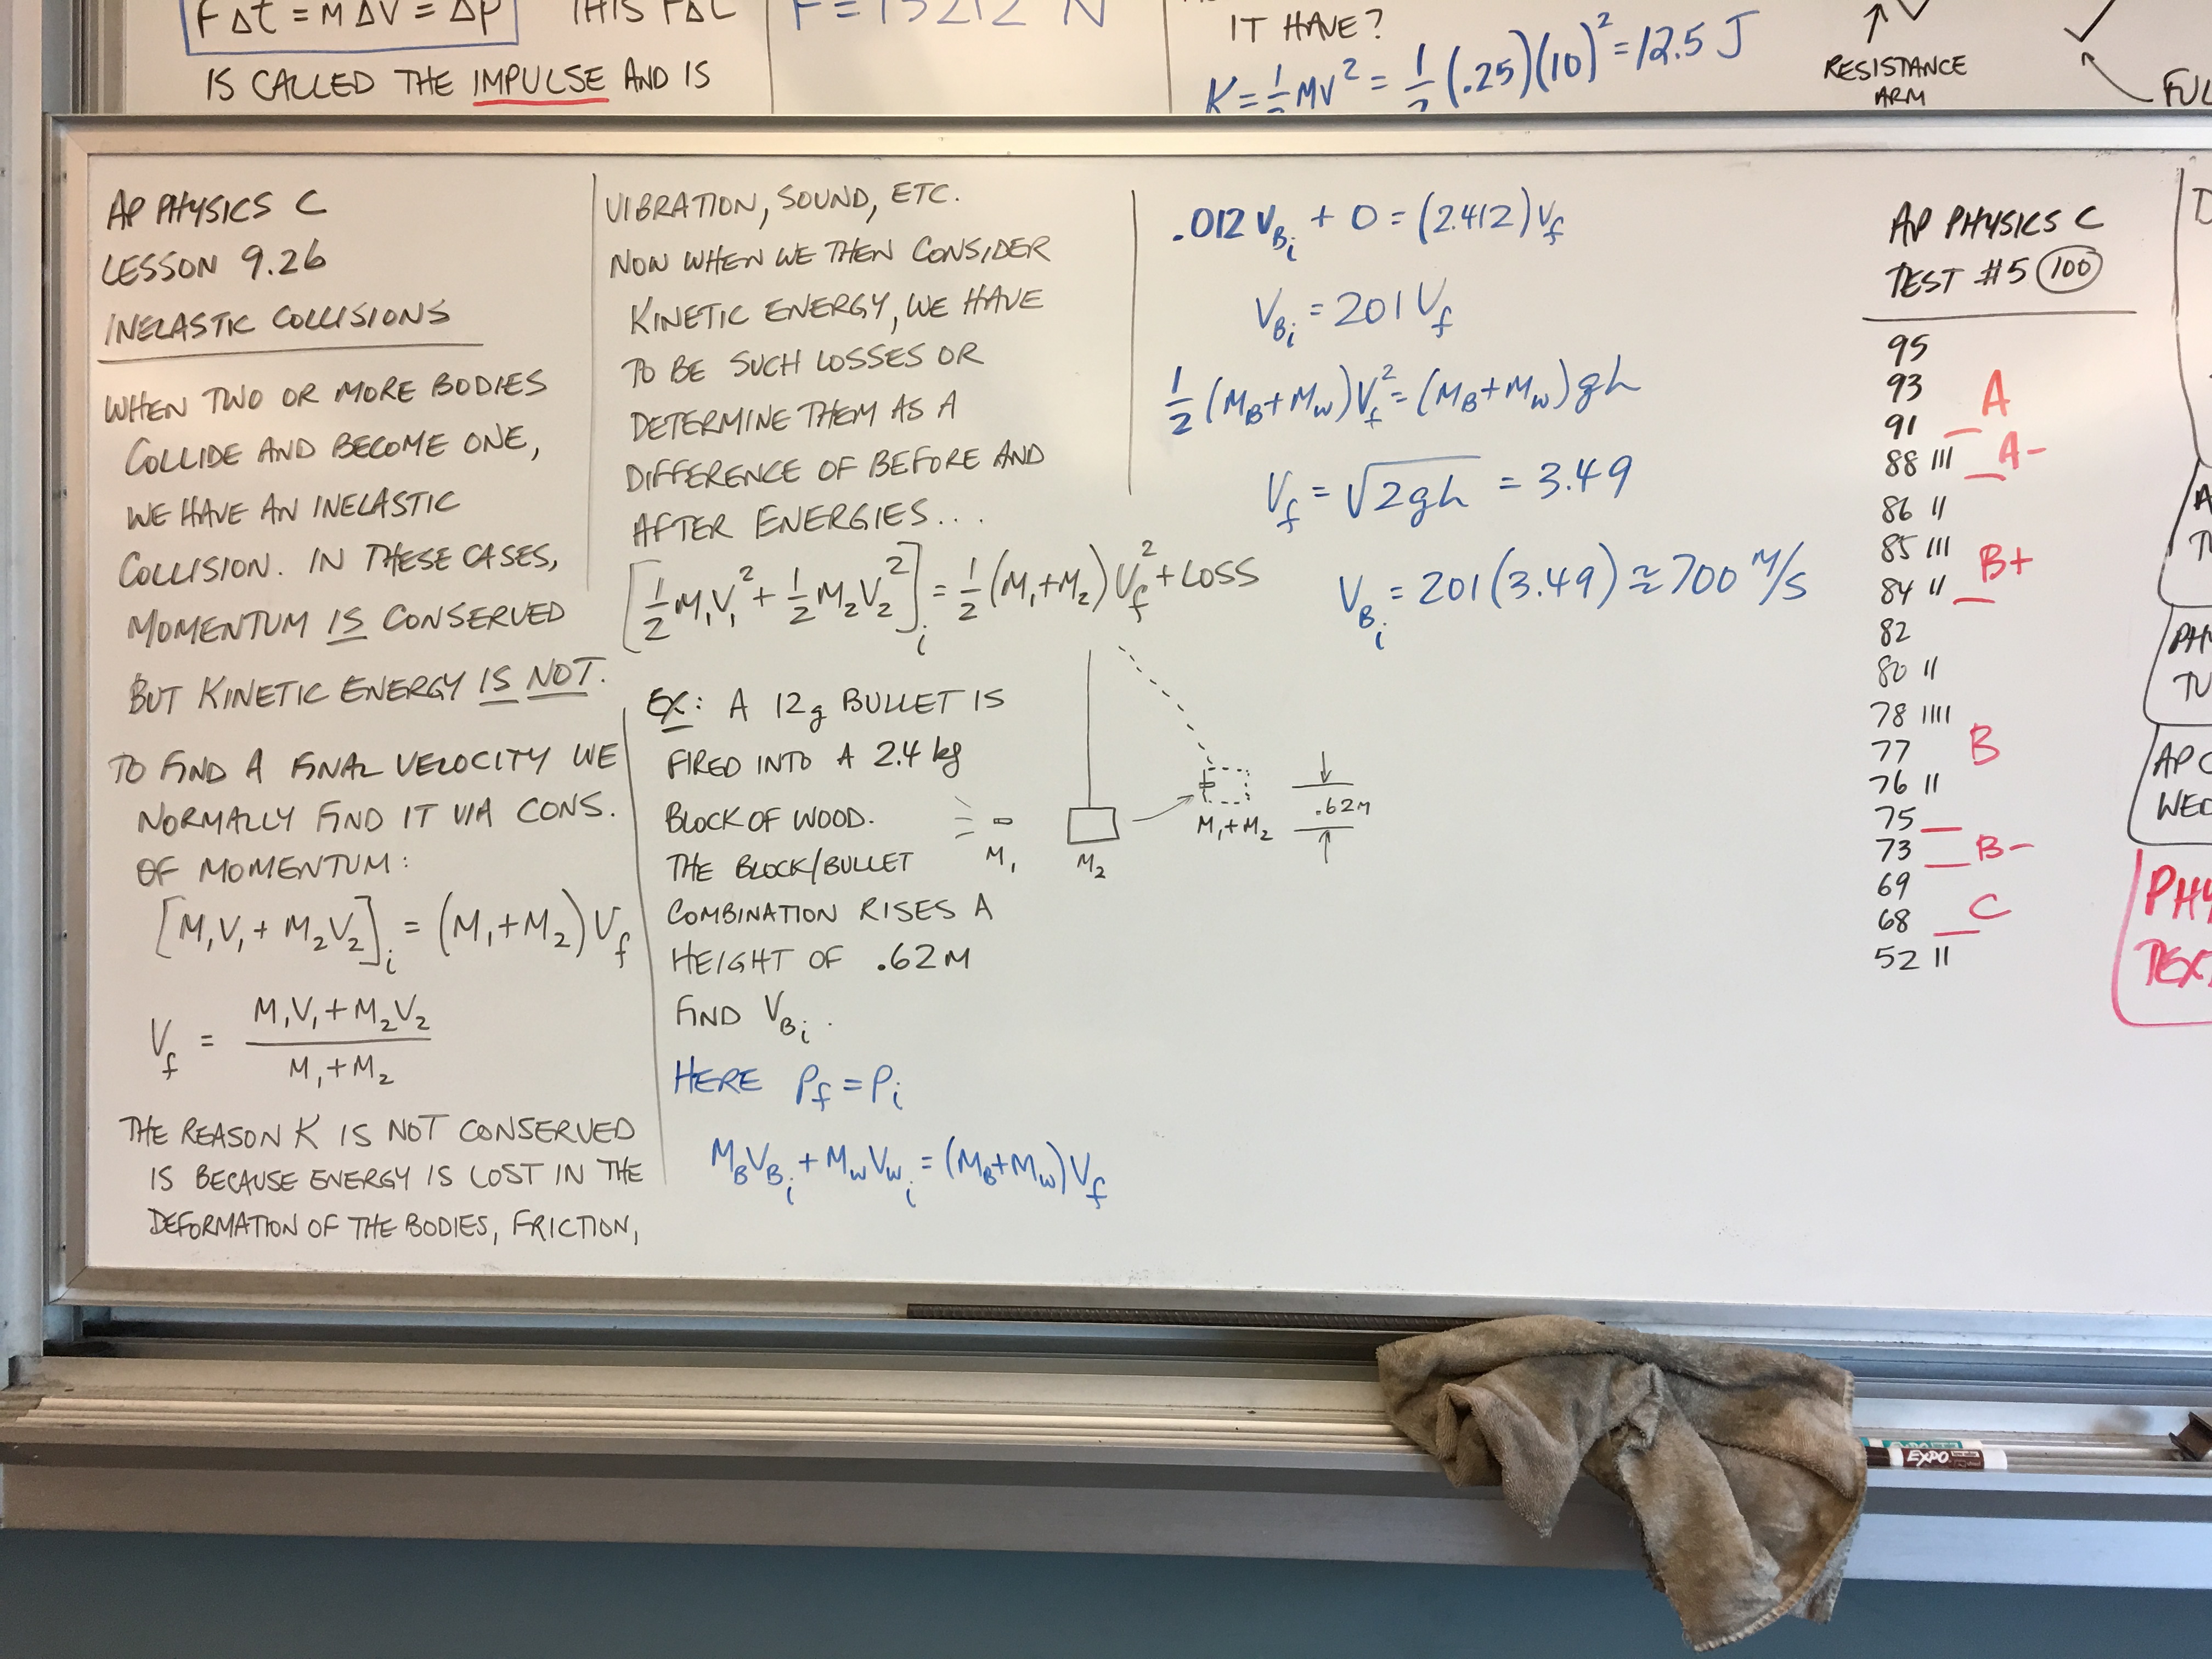 F Δt = M ΔV = Δp THIS FΔt
IS CALLED THE IMPULSE AND IS
F = 15212 N
IT HAVE?
K = 1/2 MV² = 1/2 (.25)(10)² = 12.5 J
RESISTANCE
ARM
AP PHYSICS C
LESSON 9.26
INELASTIC COLLISIONS
WHEN TWO OR MORE BODIES
COLLIDE AND BECOME ONE,
WE HAVE AN INELASTIC
COLLISION. IN THESE CASES,
MOMENTUM IS CONSERVED
BUT KINETIC ENERGY IS NOT.
TO FIND A FINAL VELOCITY WE
NORMALLY FIND IT VIA CONS.
OF MOMENTUM:
[M₁V₁ + M₂V₂]ᵢ = (M₁+M₂)V_f
V_f = (M₁V₁ + M₂V₂)/(M₁+M₂)
THE REASON K IS NOT CONSERVED
IS BECAUSE ENERGY IS LOST IN THE
DEFORMATION OF THE BODIES, FRICTION,
VIBRATION, SOUND, ETC.
NOW WHEN WE THEN CONSIDER
KINETIC ENERGY, WE HAVE
TO BE SUCH LOSSES OR
DETERMINE THEM AS A
DIFFERENCE OF BEFORE AND
AFTER ENERGIES...
[1/2 M₁V₁² + 1/2 M₂V₂²]ᵢ = 1/2 (M₁+M₂)V_f² + LOSS
EX: A 12g BULLET IS
FIRED INTO A 2.4 kg
BLOCK OF WOOD.
THE BLOCK/BULLET
COMBINATION RISES A
HEIGHT OF .62M
FIND V_Bᵢ.
M₁
M₂
M₁+M₂
.62M
HERE P_f = Pᵢ
M_B V_Bᵢ + M_w V_wᵢ = (M_B+M_w)V_f
.012 V_Bᵢ + 0 = (2.412)V_f
V_Bᵢ = 201 V_f
1/2 (M_B+M_w)V_f² = (M_B+M_w)gh
V_f = √2gh = 3.49
V_Bᵢ = 201(3.49) ≈ 700 M/S
AP PHYSICS C
TEST #5 (100)
95
93 A
91
88 III A-
86 II
85 III B+
84 II
82
80 II
78 IIII
77 B
76 II
75
73 B-
69
68 C
52 II
AP C
WED
EXPO